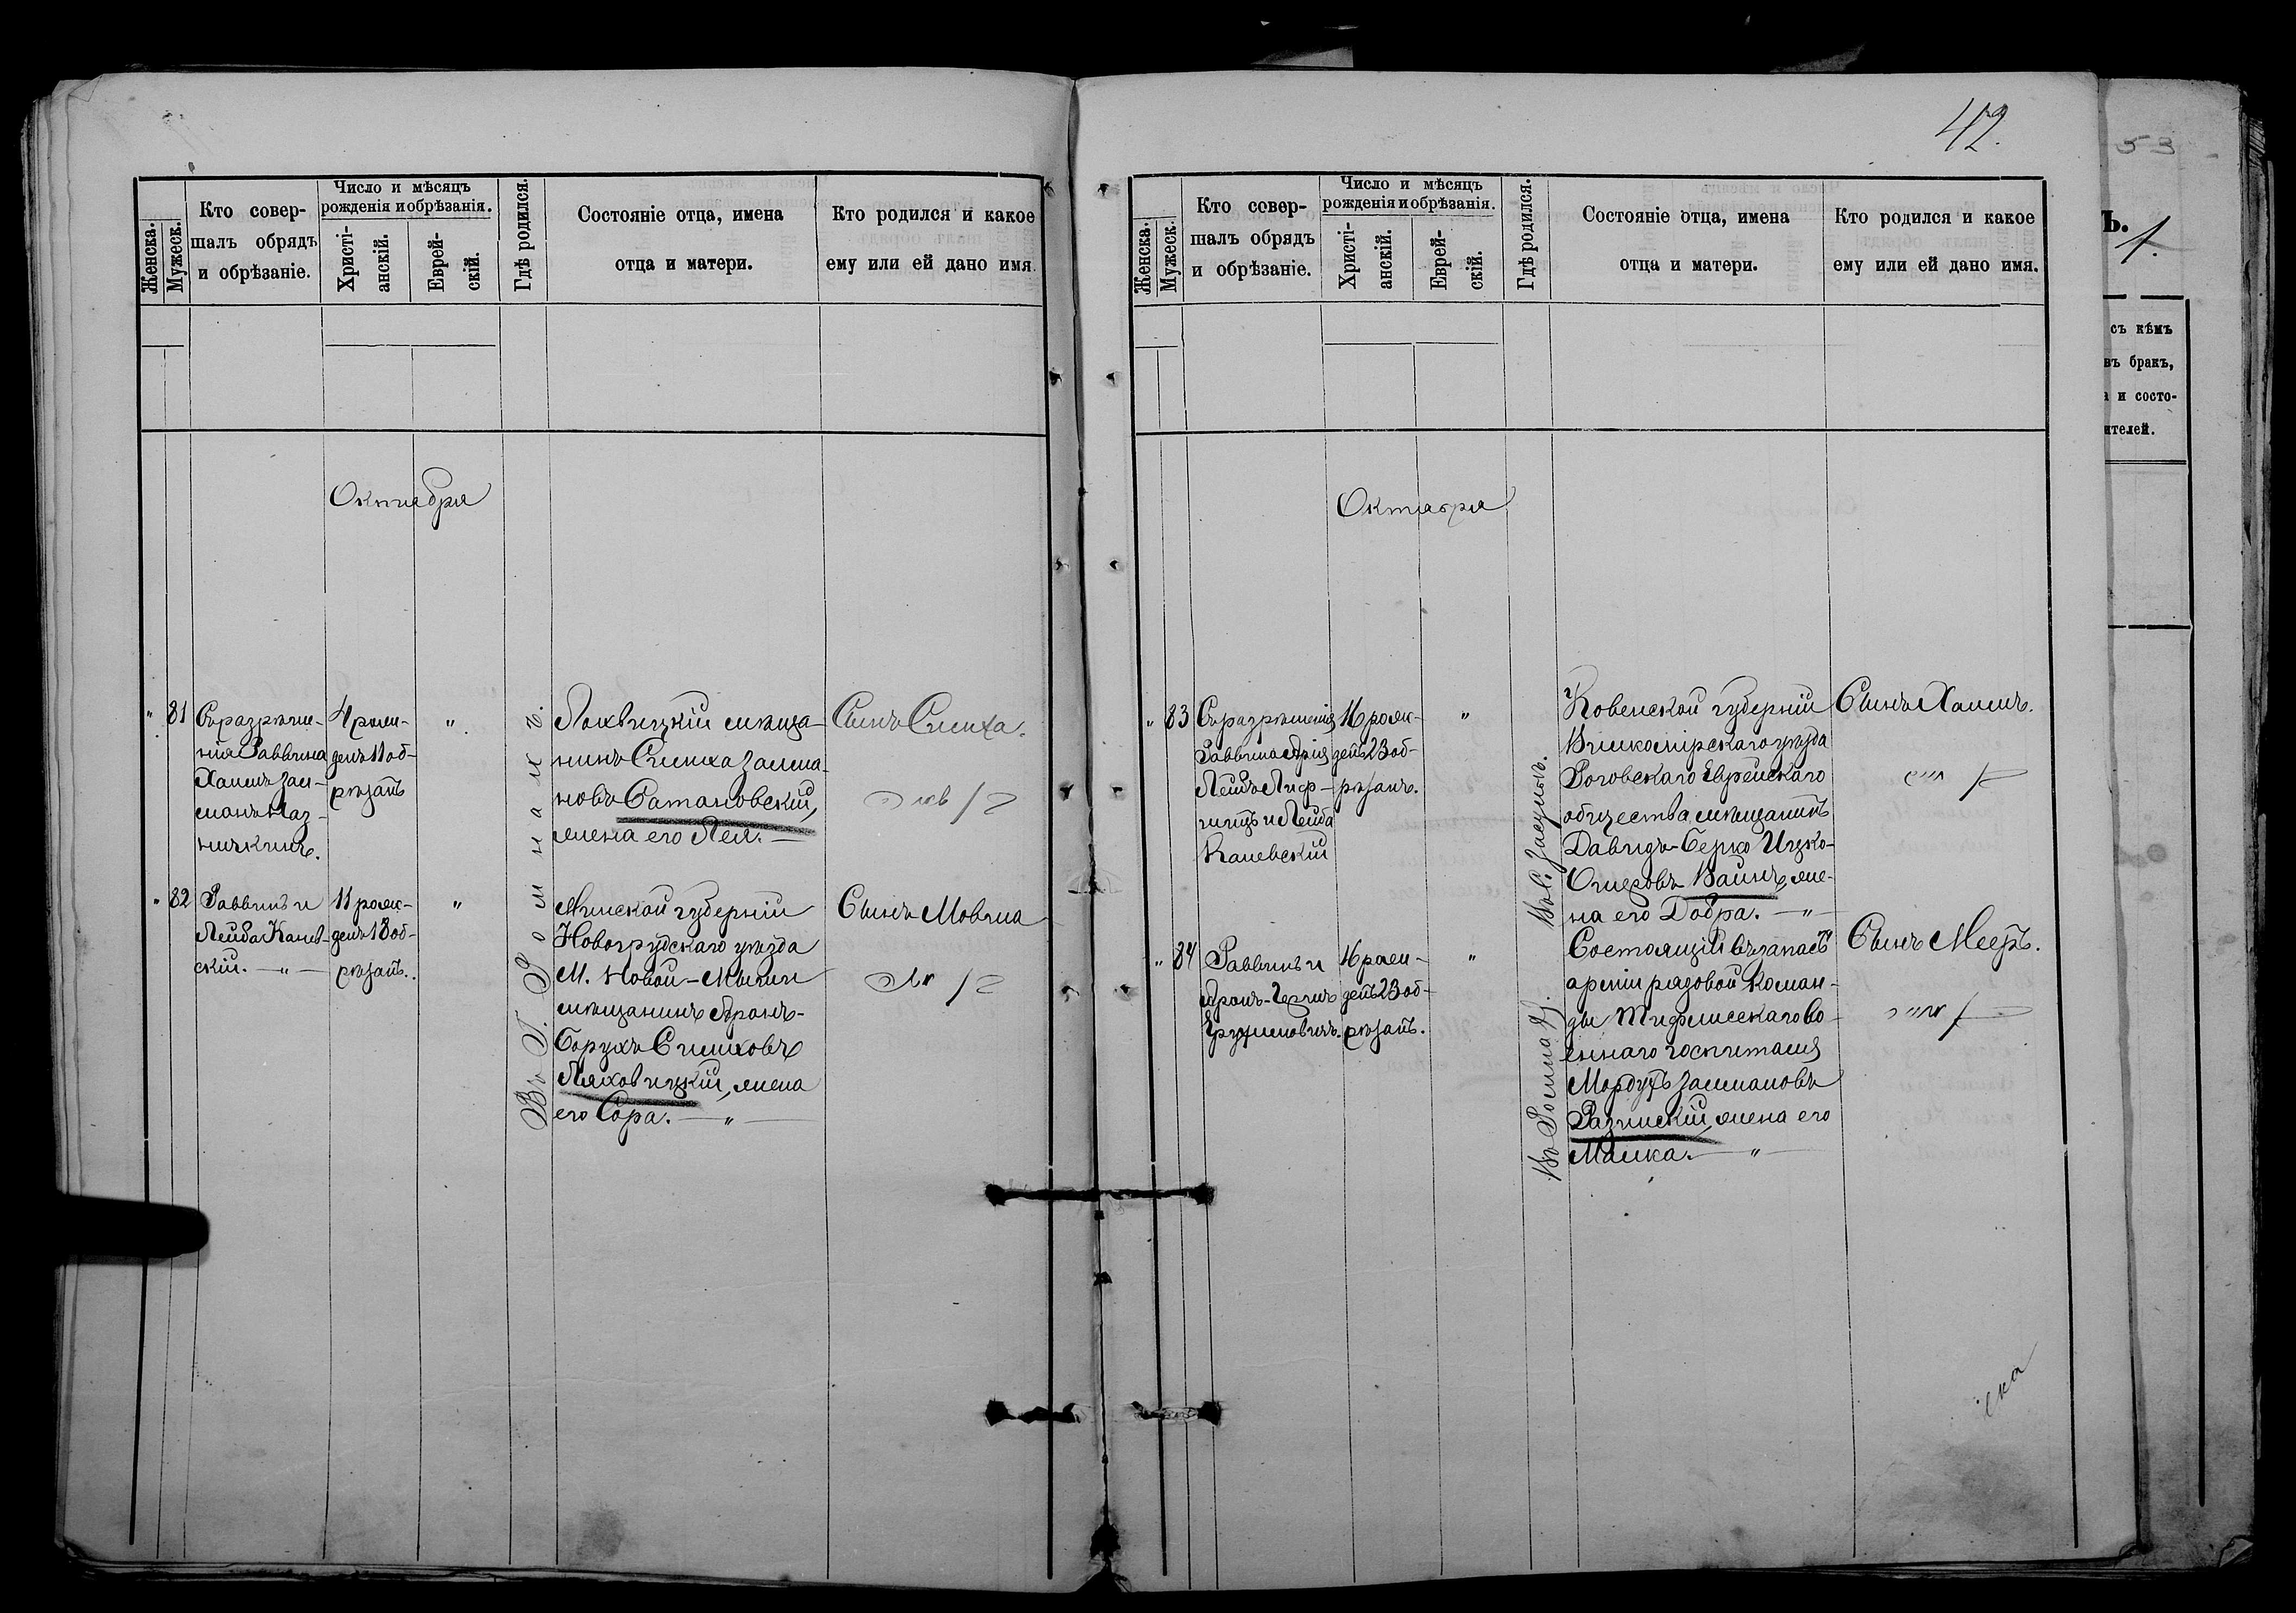 42.
Женска.
Мужеск.
Кто совер-
шалъ обрядъ
и обрѣзаніе.
Число и мѣсяцъ
рожденія и обрѣзанія.
Христі-
анскій.
Еврей-
скій.
Гдѣ родился.
Состояніе отца, имена
отца и матери.
Кто родился и какое
ему или ей дано имя.
Октября
" 81
Съ разрѣше-
нія Раввина
Хаимъ Зал-
манъ
4 рож-
денъ 11 об-
рѣзанъ
"
Въ Г. Ромнахъ.
Лохвицкій мѣща-
нинъ Симха Залма-
новъ Сатановскій,
жена его Лея. —
Сынъ Симха.
" 82
Раввинъ и
Лейба Канев-
скій. — " —
11 рож-
денъ 18 об-
рѣзанъ.
"
Минской губерніи
Новогрудскаго уѣзда
М. Новой-Мыши
мѣщанинъ Аронъ-
Борухъ Симховъ
Ляховицкій, жена
его Сора. — " —
Сынъ Мовша
Женска.
Мужеск.
Кто совер-
шалъ обрядъ
и обрѣзаніе.
Число и мѣсяцъ
рожденія и обрѣзанія.
Христі-
анскій.
Еврей-
скій.
Гдѣ родился.
Состояніе отца, имена
отца и матери.
Кто родился и какое
ему или ей дано имя.
Октября
" 83
Съ разрѣшенія
Раввина Арія
Лейбъ Лиф-
шицъ и Лейба
Каневскій
16 рож-
денъ 23 об-
рѣзанъ.
"
Въ С. Засульѣ.
Ковенской губерніи
Вилкомірскаго уѣзда
Роговскаго Еврейскаго
общества, мѣщанинъ
Давидъ-Берко Ицко-
Омеровъ Вайнъ, же-
на его Добра. — " —
Сынъ Хаимъ.
" 84
Раввинъ и
16 рож-
денъ 23 об-
рѣзанъ.
"
Въ Ромнахъ.
Состоящій въ запасѣ
арміи рядовой Коман-
ды Тифлисскаго Во-
еннаго госпиталя
Мордухъ Залмановъ
Разинскій, жена его
Малка. — " —
Сынъ Мееръ.
53
Ъ.
1.
съ кѣмъ
въ бракъ,
а и состо-
ителей.